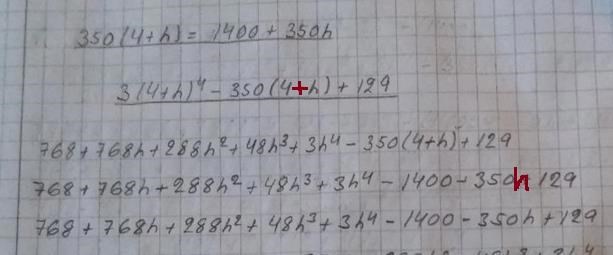 350(4+h) = 1400 + 350h
3(4+h)⁴ - 350(4+h) + 129
768 + 768h + 288h² + 48h³ + 3h⁴ - 350(4+h) + 129
768 + 768h + 288h² + 48h³ + 3h⁴ - 1400 - 350h 129
768 + 768h + 288h² + 48h³ + 3h⁴ - 1400 - 350h + 129